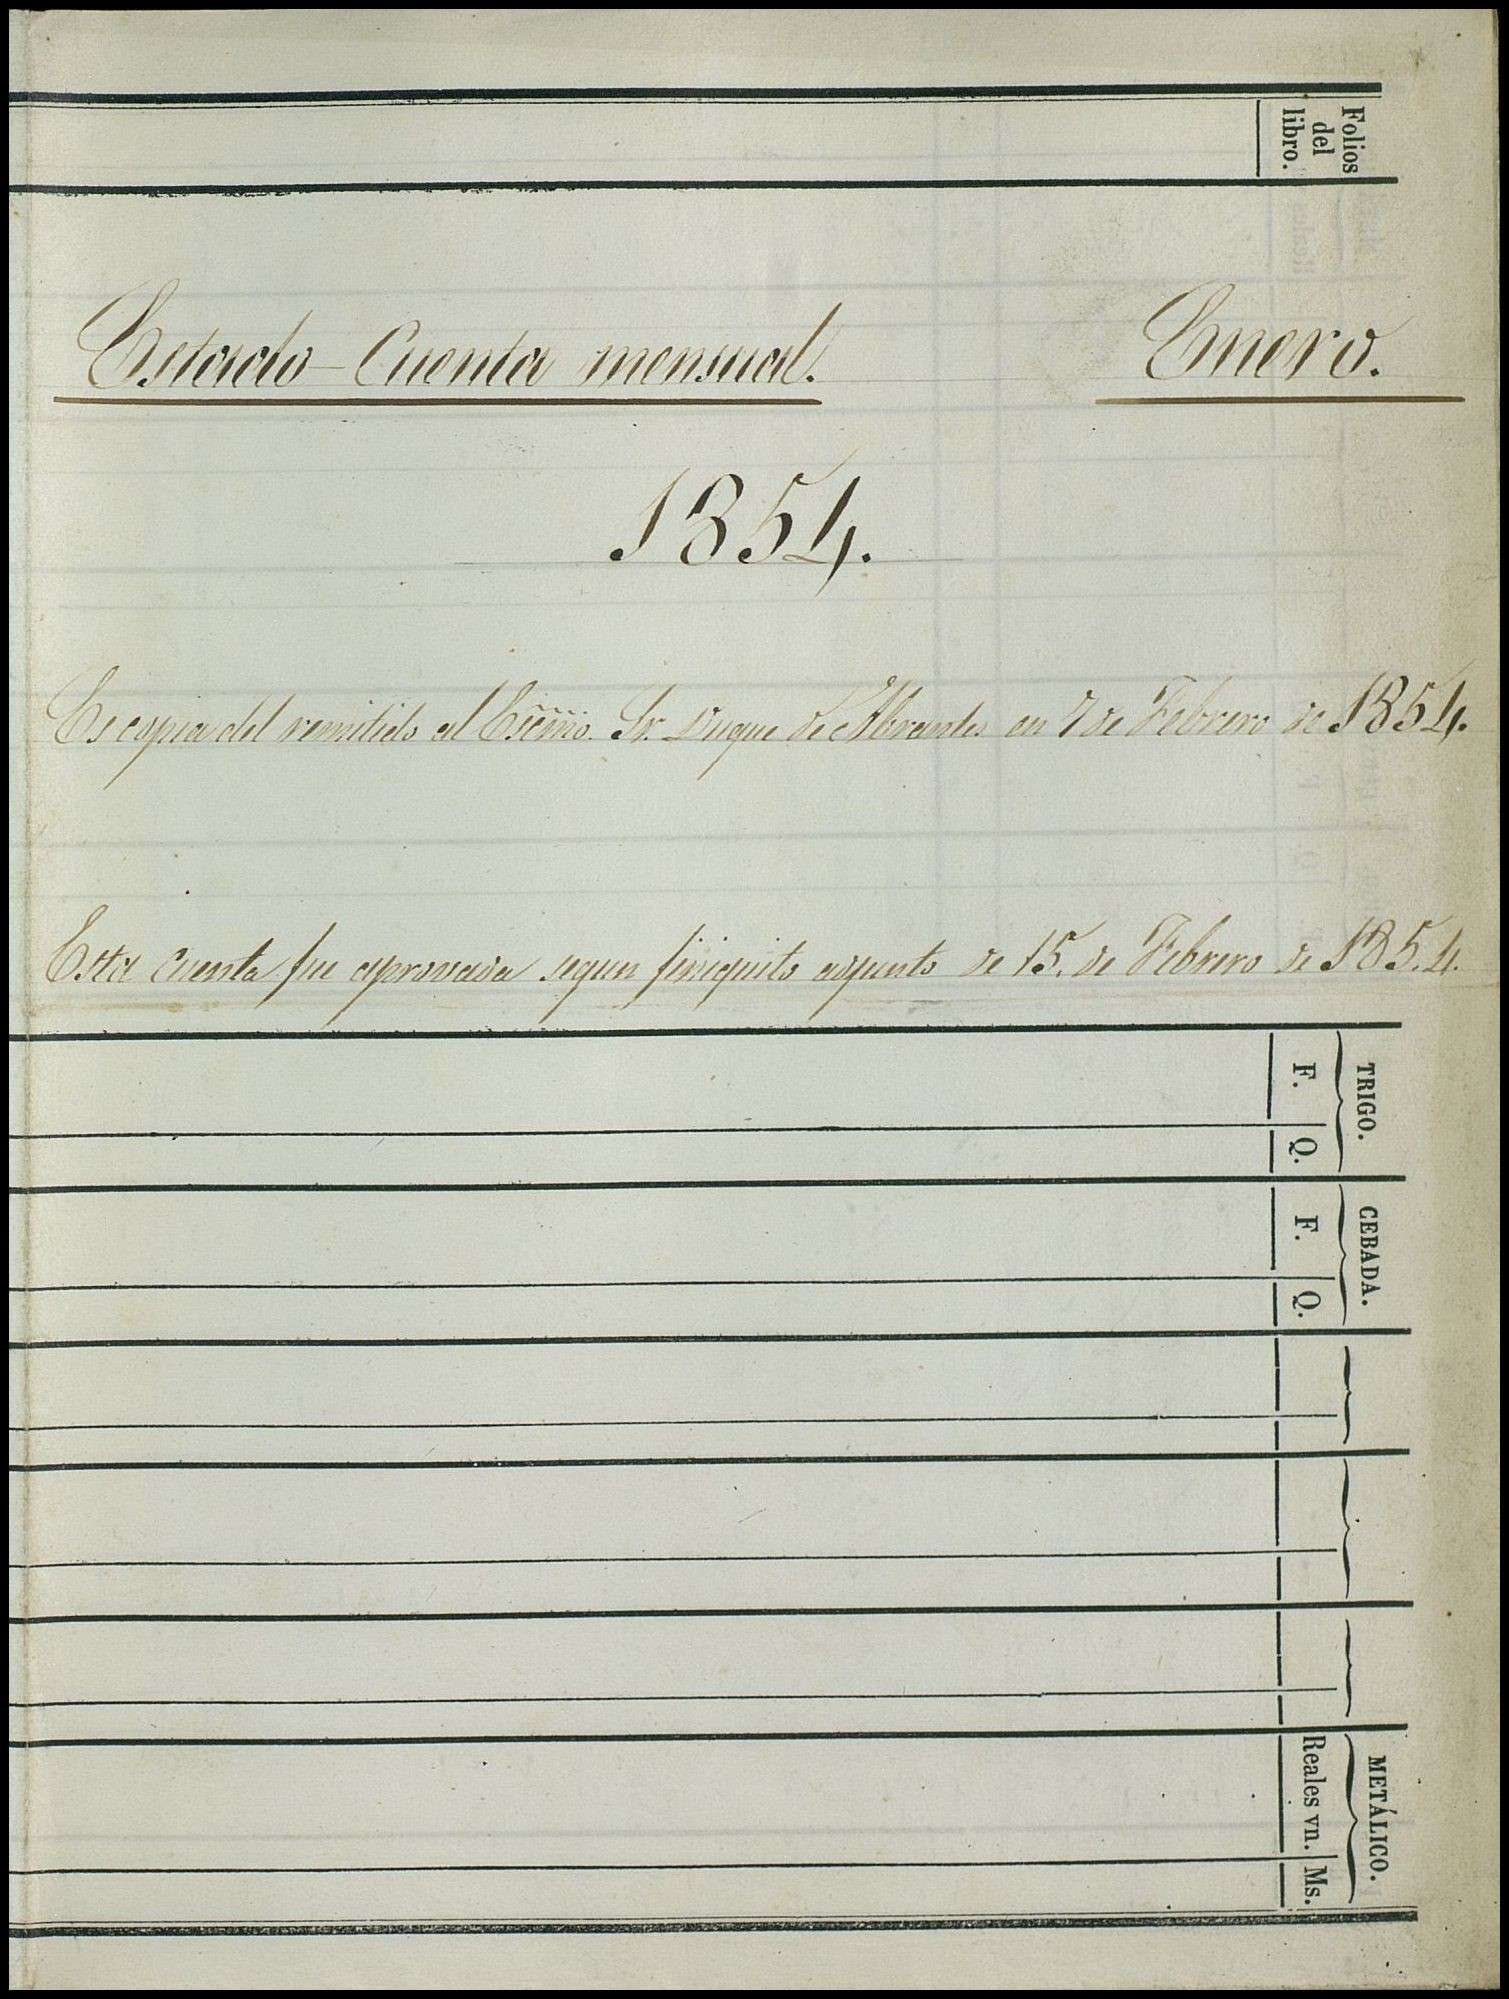 Folios
del
libro.
Estado-Cuenta mensual.
Enero.
1854.
Es copia del remitido al Escmo. Sr. Duque de Abrantes en 7 de Febrero de 1854.
Esta cuenta fue apronada segun finiquito adjunto de 15. de Febrero de 185.4.
TRIGO.
F. Q.
CEBADA.
F. Q.
METÁLICO.
Reales vn. Ms.